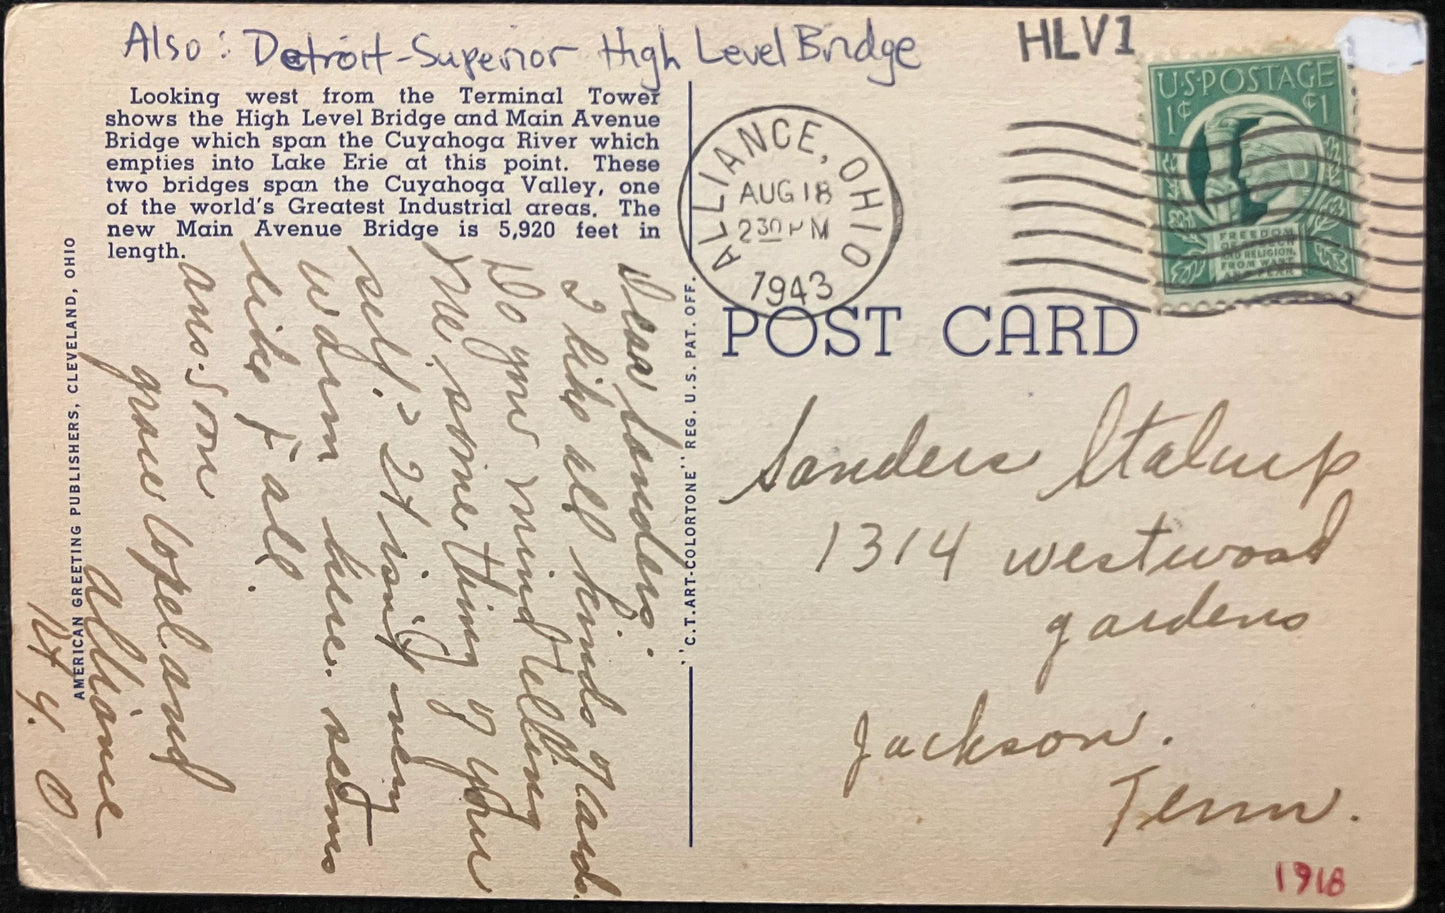 Also: Detroit-Superior High Level Bridge
HLV1
Looking west from the Terminal Tower
shows the High Level Bridge and Main Avenue
Bridge which span the Cuyahoga River which
empties into Lake Erie at this point. These
two bridges span the Cuyahoga Valley, one
of the world's Greatest Industrial areas. The
new Main Avenue Bridge is 5,920 feet in
length.
AMERICAN GREETING PUBLISHERS, CLEVELAND, OHIO
"C.T.ART-COLORTONE" REG. U.S. PAT. OFF.
Dear Sanders.
I like all kinds of cards.
Do you mind telling
me something of your
self? It is very
warm here. seems
like fall.
ans. soon
grace Copeland
Alliance
Rt 4. O
ALLIANCE, OHIO
AUG 18
2 30 PM
1943
U·S·POSTAGE
1¢ ¢1
FREEDOM
OF SPEECH
AND RELIGION,
FROM WANT
AND FEAR
POST CARD
Sanders Stalcup
1314 westwood
gardens
Jackson.
Tenn.
1918